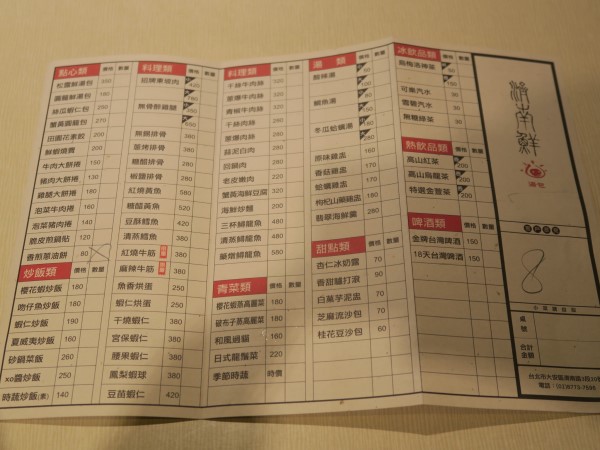 點心類 價格 數量
松露鮮湯包 350
絲瓜蝦仁包 250
蟹黃圓籠包 290
田園花素餃 200
鮮蝦燒賣 200
牛肉大餅捲 150
豬肉大餅捲 130
雞腿大餅捲 160
泡菜牛肉捲 160
泡菜豬肉捲 140
脆皮煎鍋貼 120
香煎蔥油餅 80
炒飯類 價格 數量
櫻花蝦炒飯 180
吻仔魚炒飯 180
蝦仁炒飯 190
夏威夷炒飯 160
砂鍋菜飯 250
XO醬炒飯 250
時蔬炒飯(素) 140
料理類 價格 數量
無錫排骨 380
薑烤排骨 380
糖醋排骨 380
椒鹽排骨 380
紅燒黃魚 580
糖醋黃魚 580
豆酥鱈魚 380
清蒸鱈魚 380
紅燒牛筋 380
麻辣牛筋 380
魚香烘蛋 280
蝦仁烘蛋 280
干燒蝦仁 380
宮保蝦仁 380
腰果蝦仁 380
鳳梨蝦球 380
豆苗蝦仁 420
料理類 價格 數量
干絲牛肉絲 320
蔥爆牛肉絲 320
青椒牛肉絲 320
干絲肉絲 280
蔥爆肉絲 280
蒜泥白肉 280
回鍋肉 280
老皮嫩肉 220
蟹黃海鮮豆腐 320
海鮮炒麵 200
三杯鯛龍魚 280
清蒸鯛龍魚 280
藥燉鯛龍魚 280
青菜類 價格 數量
櫻花蝦蒸高麗菜 180
破布子蒸高麗菜 180
和風過貓 180
日式龍鬚菜 220
季節時蔬 時價
湯類 價格 數量
酸辣湯
鮑魚湯
冬瓜蛤蠣湯
原味雞盅 160
香菇雞盅 170
蛤蠣雞盅 170
枸杞山藥雞盅 180
翡翠海鮮羹 280
甜點類 價格 數量
杏仁冰奶露 70
香甜驢打滾 90
白薯芋泥盅 70
芝麻流沙包 70
桂花豆沙包 60
冰飲品類 價格 數量
烏梅洛神茶
可樂汽水 30
雪碧汽水 30
無糖綠茶 30
熱飲品類 價格 數量
高山紅茶 200
高山烏龍茶 200
特選金萱茶 200
啤酒類 價格 數量
金牌台灣啤酒 150
18天台灣啤酒 150
濟南鮮
湯包
8
桌號
合計金額